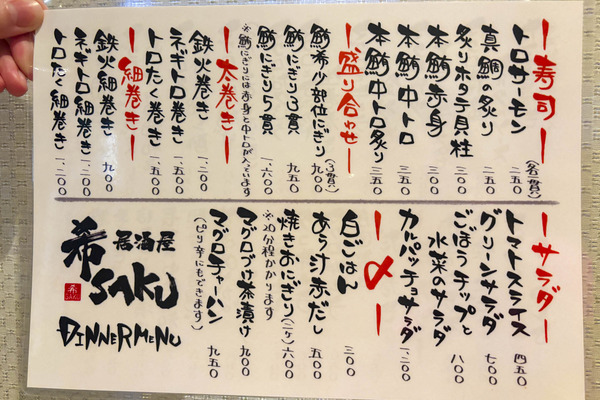 ー寿司ー(各一貫)
トロサーモン 二五〇
真鯛の炙り 二五〇
炙りホタテ貝柱 二五〇
本鮪赤身 三〇〇
本鮪中トロ 三五〇
本鮪中トロ炙り 三五〇
ー盛り合わせー
鮪希少部位にぎり(3貫) 一、二〇〇
鮪にぎり3貫 九五〇
鮪にぎり5貫 一、六〇〇
※鮪にぎりには赤身と中トロが入っています
ー太巻きー
鉄火巻き 一、二〇〇
ネギトロ巻き 一、五〇〇
トロたく巻き 一、五〇〇
ー細巻きー
鉄火細巻き 九〇〇
ネギトロ細巻き 一、二〇〇
トロたく細巻き 一、二〇〇
ーサラダー
トマトスライス 四五〇
グリーンサラダ 七〇〇
ごぼうチップと
水菜のサラダ 八〇〇
カルパッチョサラダ 一、二〇〇
ー〆ー
白ごはん 三〇〇
あら汁赤だし 五〇〇
焼きおにぎり(二ケ) 六〇〇
※20分程かかります
マグロづけ茶漬け 九〇〇
マグロチャーハン 九五〇
(ピリ辛にもできます)
居酒屋
希 SAKU
DINNER MENU